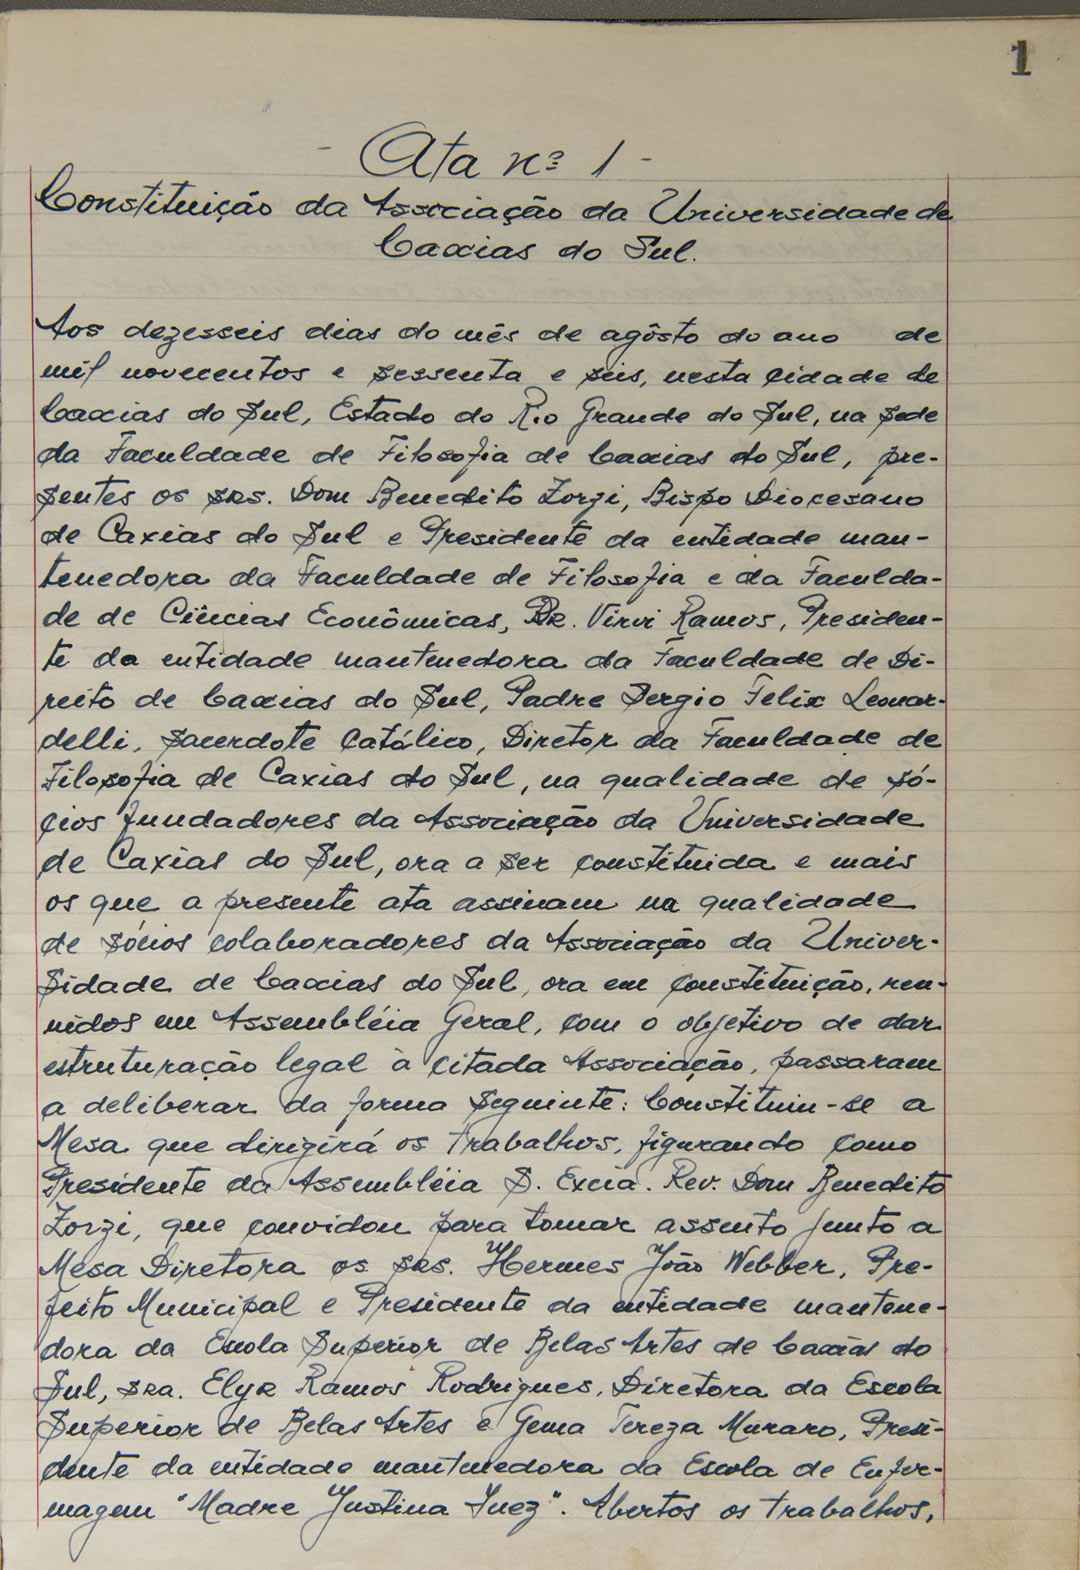 1
- Ata nº 1 -
Constituição da Associação da Universidade de
Caxias do Sul.
Aos dezesseis dias do mês de agôsto do ano de
mil novecentos e sessenta e seis, nesta cidade de
Caxias do Sul, Estado do Rio Grande do Sul, na sede
da Faculdade de Filosofia de Caxias do Sul, pre-
sentes os srs. Dom Benedito Zorzi, Bispo Diocesano
de Caxias do Sul e Presidente da entidade man-
tenedora da Faculdade de Filosofia e da Faculda-
de de Ciências Econômicas, Dr. Virvi Ramos, Presiden-
te da entidade mantenedora da Faculdade de Di-
reito de Caxias do Sul, Padre Sergio Felix Leonar-
delli, Sacerdote Católico, Diretor da Faculdade de
Filosofia de Caxias do Sul, na qualidade de só-
cios fundadores da Associação da Universidade
de Caxias do Sul, ora a ser constituida e mais
os que a presente ata assinam na qualidade
de sócios colaboradores da Associação da Univer-
sidade de Caxias do Sul, ora em constituição, reu-
nidos em Assembléia Geral, com o objetivo de dar
estruturação legal à citada Associação, passaram
a deliberar da forma seguinte: Constituiu-se a
Mesa que dirigirá os trabalhos, figurando como
Presidente da Assembléia S. Excia. Rev. Dom Benedito
Zorzi, que convidou para tomar assento junto a
Mesa Diretora os srs. Hermes João Webber, Pre-
feito Municipal e Presidente da entidade mantene-
dora da Escola Superior de Belas Artes de Caxias do
Sul, sra. Elyr Ramos Rodrigues, Diretora da Escola
Superior de Belas Artes e Gema Tereza Muraro, Presi-
dente da entidade mantenedora da Escola de Enfer-
magem "Madre Justina Inez". Abertos os trabalhos,